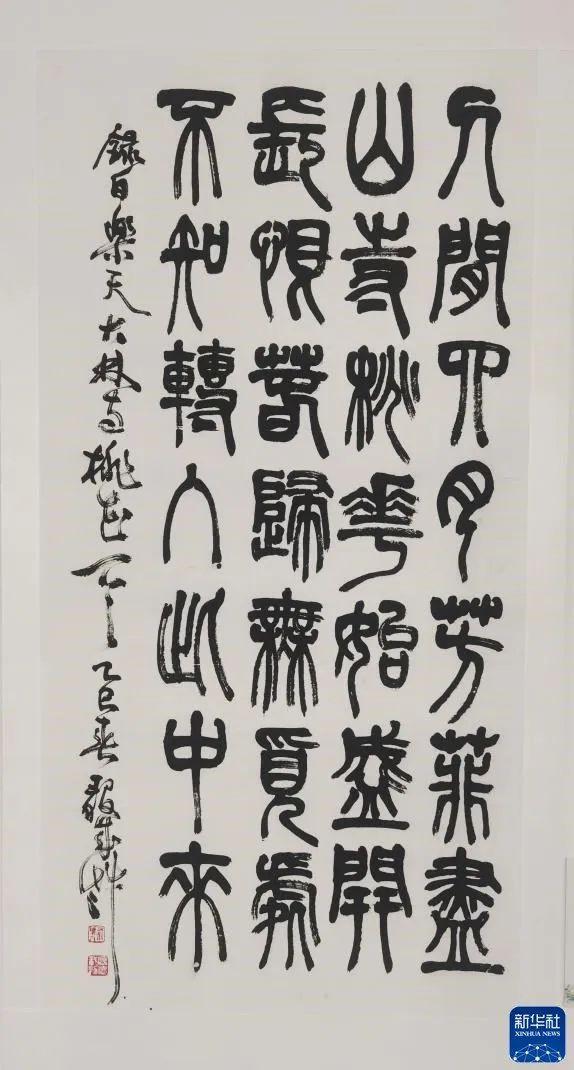 人間四月芳菲盡
山寺桃花始盛開
長恨春歸無覓處
不知轉入此中來
錄白樂天大林寺桃花 乙巳春 段成桂
新华社
XINHUA NEWS